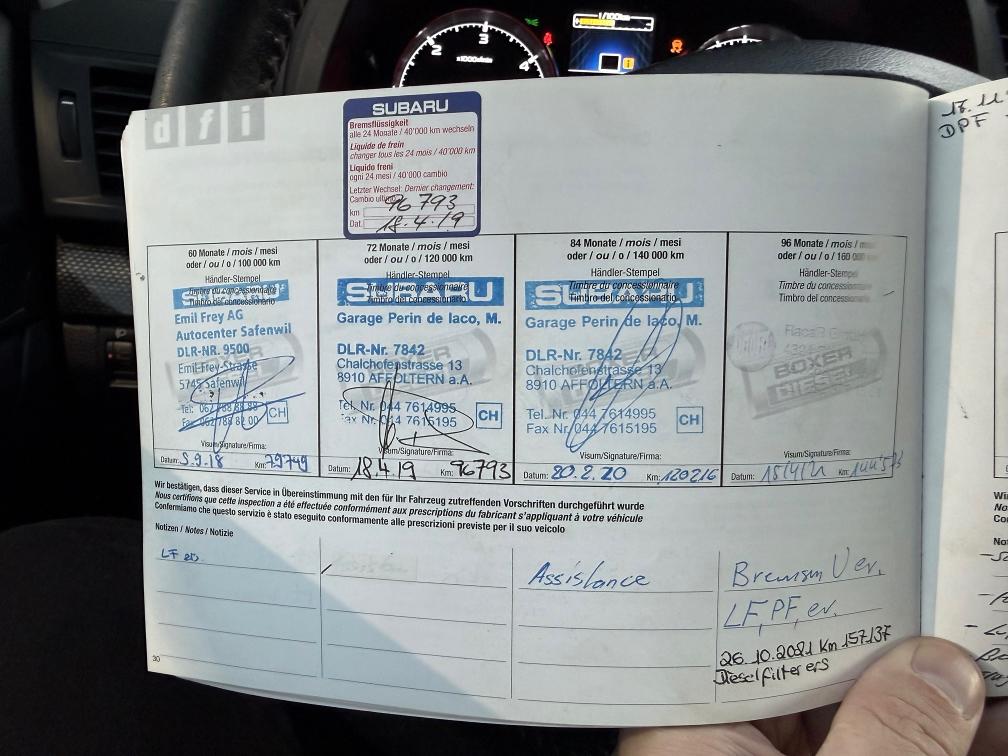 2
3
4
x1000r/min
l/100km
dfi
SUBARU
Bremsflüssigkeit
alle 24 Monate / 40'000 km wechseln
Liquide de frein
changer tous les 24 mois / 40'000 km
Liquido freni
ogni 24 mesi / 40'000 cambio
Letzter Wechsel: Dernier changement:
Cambio ultimo
km 96 793
Dat. 18.4.19
60 Monate / mois / mesi
oder / ou / o / 100 000 km
Händler-Stempel
Timbre du concessionnaire
Timbro del concessionario
Emil Frey AG
Autocenter Safenwil
DLR-NR. 9500
Emil-Frey-Strasse
5745 Safenwil
Tel. 062 788 88 88
Fax 062 788 82 00
CH
Visum/Signature/Firma:
Datum: 5.9.18 Km: 79749
72 Monate / mois / mesi
oder / ou / o / 120 000 km
Händler-Stempel
SUBARU
Timbre du concessionnaire
Timbro del concessionario
Garage Perin de Iaco, M.
DLR-Nr. 7842
Chalchofenstrasse 13
8910 AFFOLTERN a.A.
Tel. Nr. 044 7614995
Fax Nr. 044 7615195
CH
Visum/Signature/Firma:
Datum: 18.4.19 Km: 96793
84 Monate / mois / mesi
oder / ou / o / 140 000 km
Händler-Stempel
SUBARU
Timbre du concessionnaire
Timbro del concessionario
Garage Perin de Iaco, M.
DLR-Nr. 7842
Chalchofenstrasse 13
8910 AFFOLTERN a.A.
Tel. Nr. 044 7614995
Fax Nr. 044 7615195
CH
Visum/Signature/Firma:
Datum: 20.2.20 Km: 120216
96 Monate / mois / mesi
oder / ou / o / 160 000
Händler-Stempel
Timbre du concessionnaire
Timbro del concessionario
BOXER
DIESEL
Visum/Signature/Firma:
Datum: Km:
Wir bestätigen, dass dieser Service in Übereinstimmung mit den für Ihr Fahrzeug zutreffenden Vorschriften durchgeführt wurde
Nous certifions que cette inspection a été effectuée conformément aux prescriptions du fabricant s'appliquant à votre véhicule
Confermiamo che questo servizio è stato eseguito conformamente alle prescrizioni previste per il suo veicolo
Notizen / Notes / Notizie
LF
Assistance
LF, PF, er.
26.10.2021 Km 157.137
Dieselfilter ers
30
DPF